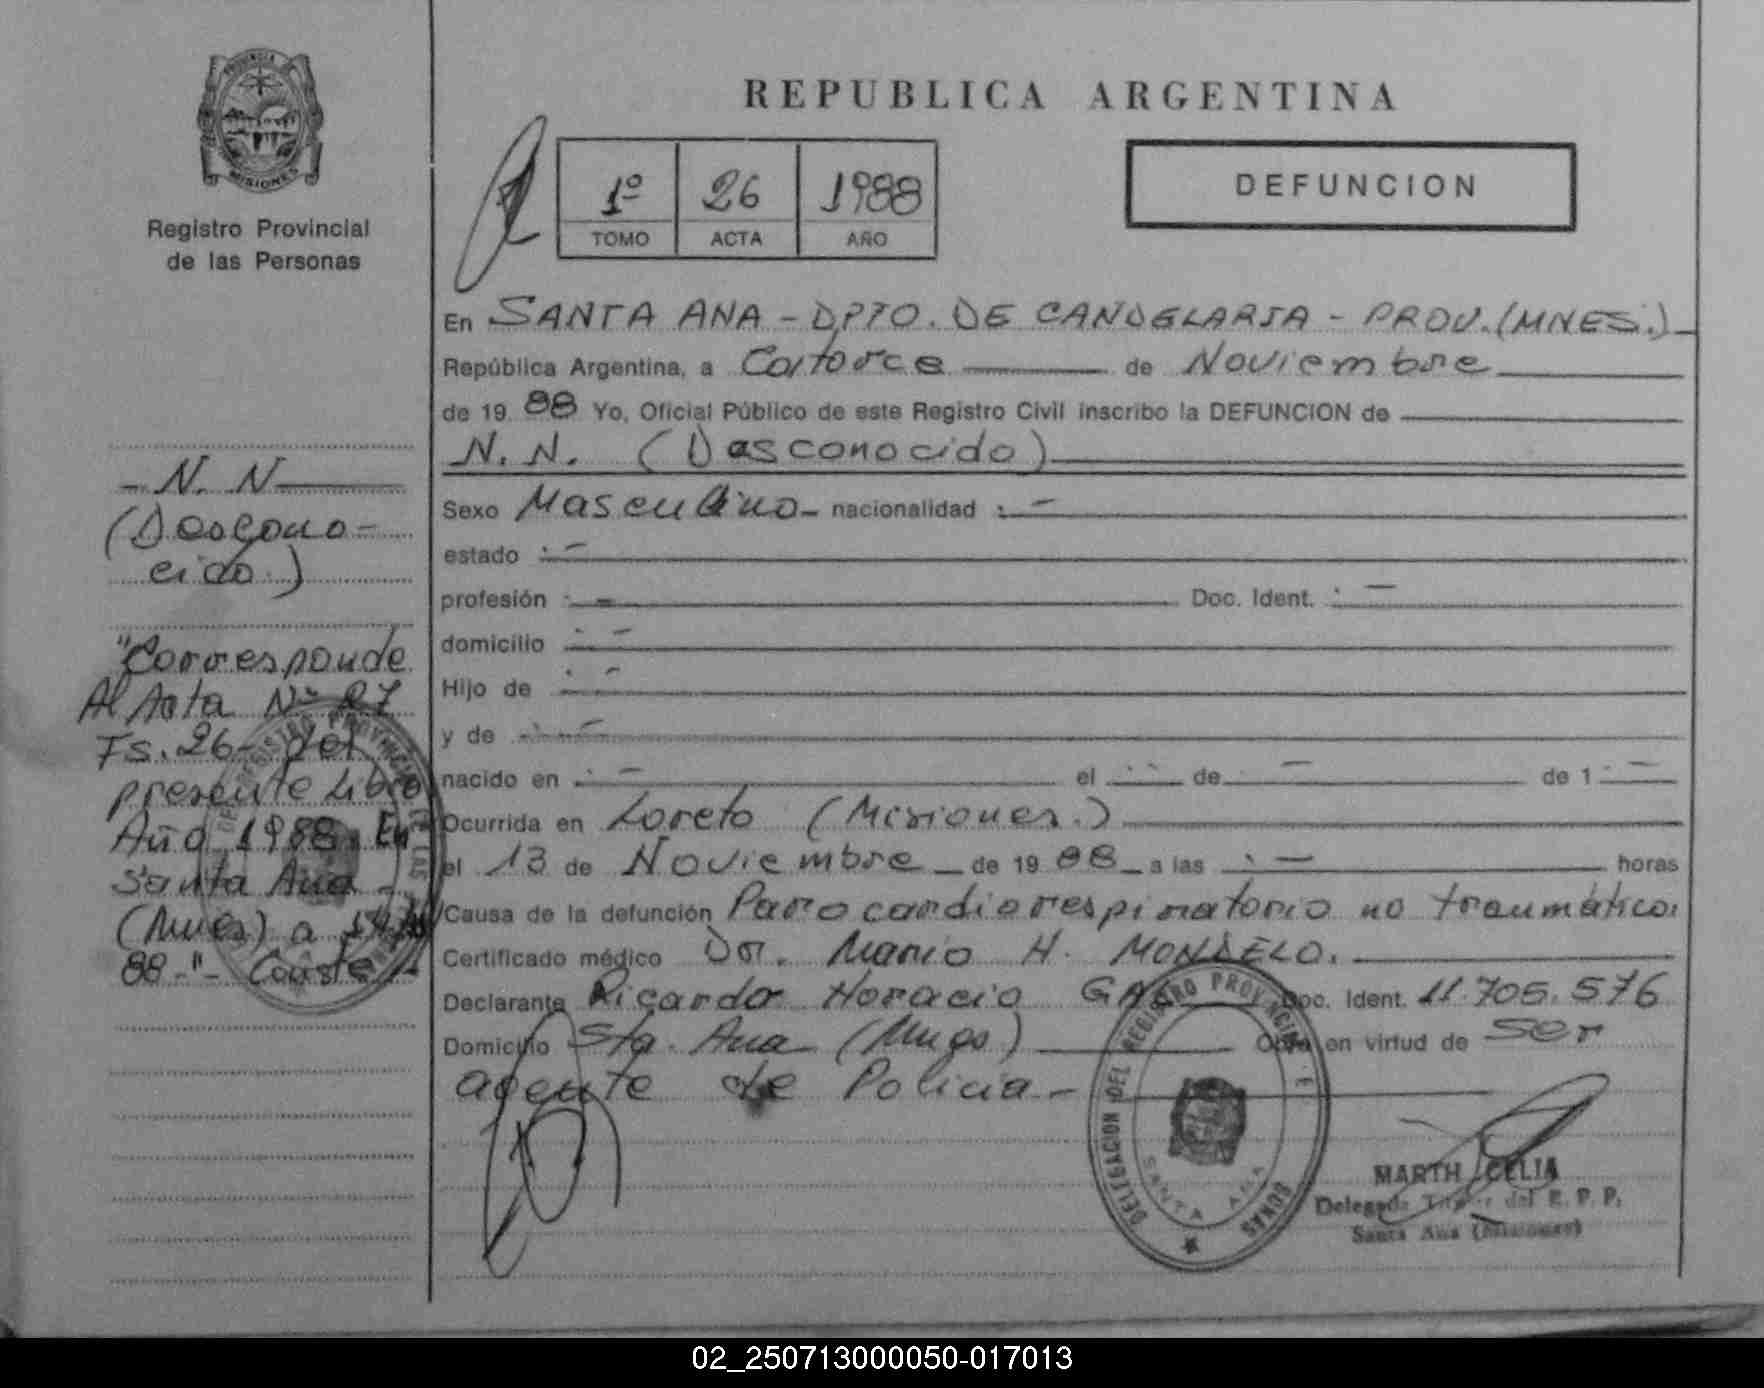 PROVINCIA DE
MISIONES
Registro Provincial
de las Personas
REPUBLICA ARGENTINA
1º 26 1988
TOMO ACTA AÑO
DEFUNCION
En SANTA ANA - DPTO. DE CANDELARIA - PROV. (MNES.)
República Argentina, a Catorce de Noviembre
de 19 88 Yo, Oficial Público de este Registro Civil inscribo la DEFUNCION de
N. N. (Desconocido)
Sexo Masculino - nacionalidad : -
estado : -
profesión : - Doc. Ident. : -
domicilio : -
Hijo de : -
y de : -
nacido en : - el : de - de 1 : -
Ocurrida en Loreto (Misiones.)
el 13 de Noviembre de 19 88 a las : - horas
Causa de la defunción Paro cardiorespiratorio no traumático.
Certificado médico Dr. Mario H. MONDELO.
Declarante Ricardo Horacio Doc. Ident. 11.705.576
Domicilio Sta. Ana (Mnes) Obra en virtud de Ser
agente de Policia -
- N. N
(Descono-
cido.)
"Corresponde
Al Acta Nº 27
Fs. 26 - del
presente Libro
Año 1988. En
Santa Ana -
(Mnes) a
88 -"- Conste -
DELEGACION DEL REGISTRO PROVINCIAL DE
SANTA ANA
MARTH CELIA
Delegada Titular del R. P. P.
Santa Ana (Misiones)
02_250713000050-017013